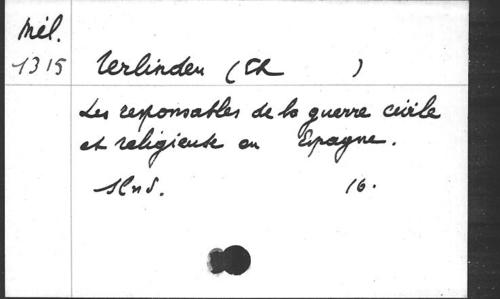 Mél.
1315
Verlinden (Ch )
Les responsables de la guerre civile
et religieuse en Espagne.
Slnd. 16.